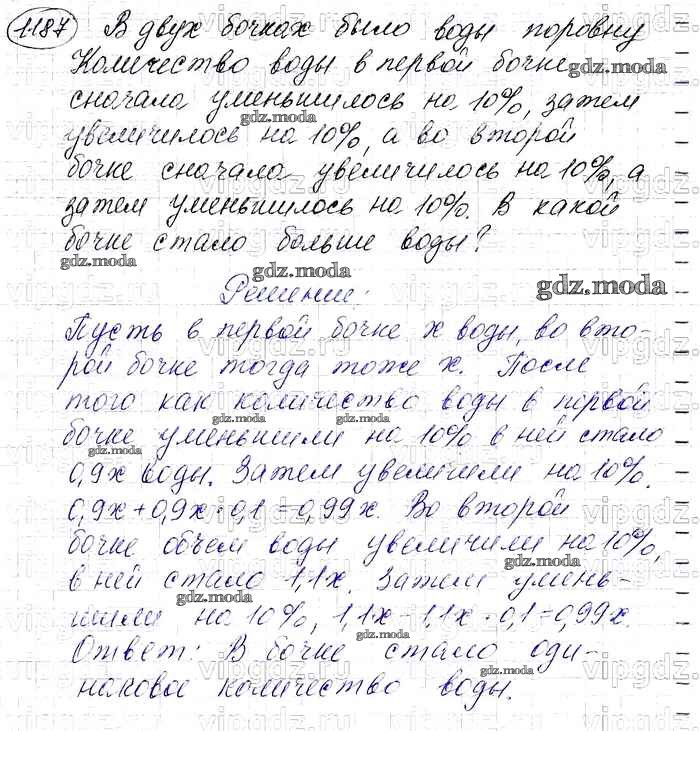 1187) В двух бочках было воды поровну
Количество воды в первой бочке
сначала уменьшилось на 10%, затем
увеличилось на 10%, а во второй
бочке сначала увеличилось на 10%, а
затем уменьшилось на 10%. В какой
бочке стало больше воды?
Решение:
Пусть в первой бочке x воды, во вто-
рой бочке тогда тоже x. После
того как количество воды в первой
бочке уменьшили на 10% в ней стало
0,9x воды. Затем увеличили на 10%.
0,9x+0,9x·0,1=0,99x. Во второй
бочке объем воды увеличили на 10%,
в ней стало 1,1x. Затем умень-
шили на 10%, 1,1x-1,1x·0,1=0,99x.
Ответ: В бочке стало оди-
наковое количество воды.
gdz.moda
gdz.moda
gdz.moda
gdz.moda
gdz.moda
gdz.moda
gdz.moda
gdz.moda
gdz.moda
gdz.moda
gdz.moda
gdz.moda
vipgdz